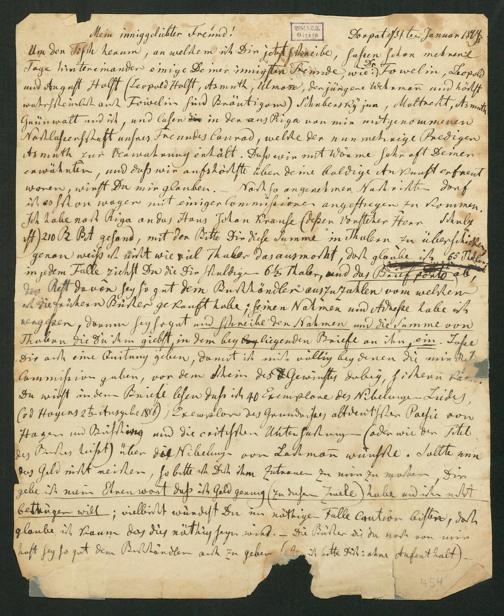 Mein inniggeliebter Freund! Dorpat d. 31ten Januar
Um den Tisch herum, an welchem ich Dir jetzt schreibe, saßen schon mehrere
Tage hintereinander einige Deiner innigsten Freunde, wie Dr Towelin, Leopold
und August Holst (Leopold Holst, Asmuth, Ulmann, der jüngere Wehrman und höchst
wahrscheinlich auch Towelin sind Bräutigam) jun, Asmuth
Grünwalt und ich, und lasen in der aus Riga von mir mitgenommenen
Nachlassenschaft unsres Freundes Conrad, welche der nunmehrige Prediger
Asmuth zur Verwahrung erhält. Dass wir mit Wärme sehr oft Deiner
erwähnten, und daß wir aufs höchste über deine baldige Ankunft erfreut
waren, wirst Du mir glauben. Nach so angenehmen Nachrichten darf
ich es schon wagen mit einigen Commissionen angezogen zu kommen.
Ich habe nach Riga an das Haus Johan Krause (dessen Vorsteher Herr Schulz
ist) 210 R. gesand, mit der Bitte Dir diese Summe in Thalern zu überschicken
genau weiß ich nicht wie viel Thaler das ausmacht, doch glaube ich, 65 Thaler
in jedem Falle ziehst Du die Dir schuldigen 6½ Thaler, und das Brief porto ab
den Rest davon sey so gut dem Buchhändler auszuzahlen von welchem
ich die frühern Bücher gekauft habe; seinen Nahmen und Adresse habe ich
vergessen, darum sey so gut und schreibe den Nahmen und die Summe von
Thalern die Du ihm giebst, in dem beyliegenden Briefe an ihn, ein. Lasse
Dir auch eine Quitung geben, damit ich mich völlig bey denen die mir
Commission gaben, vor dem Schein des Gewinstes dabey, sichern kann.
Du wirst in dem Briefe lesen daß ich 40 Exemplare des Nibelungen Liedes,
(Hagens 2te Ausgabe), Exemplare des Grundrisses altdeutscher Poesie von
Hagen und Büsching und die critischen Untersuchungen (oder wie der Titel
des Buches heißt) über die Nibelungen von Lachman wünsche. Sollte nun
das Geld nicht reichen, so bitte ich Dich ihm Zutrauen zu mir zu machen, Dir
gebe ich mein Ehrenwort daß ich Geld genug (zu diesem Zwecke) habe und ihn nicht
betrügen will; vielleicht würdest Du im nöthigen Falle Caution leisten, doch
glaube ich kaum das dies nöthig seyn wird. — Die Bücher die du noch von mir
hast sey so gut dem Buchhändler auch zu geben (ich bitte Dich ohne Aufenthalt). —
454